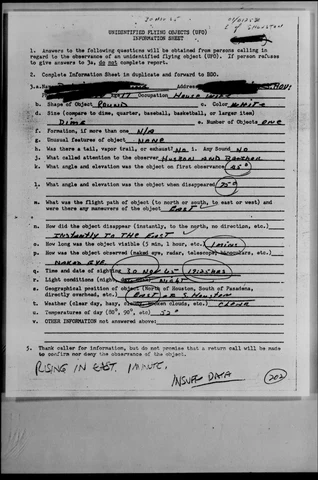 30 NOV 65
E of HOUSTON
UNIDENTIFIED FLYING OBJECTS (UFO)
INFORMATION SHEET
1. Answers to the following questions will be obtained from persons calling in
regard to the observance of an unidentified flying object (UFO). If person refuses
to give answers to 3a, do not complete report.
2. Complete Information Sheet in duplicate and forward to BDO.
3.a. Address
Occupation House wife
b. Shape of Object ROUND c. Color WHITE
d. Size (compare to dime, quarter, baseball, basketball, or larger item)
DIME e. Number of Objects ONE
f. Formation, if more than one N/A
g. Unusual features of object NONE
h. Was there a tail, vapor trail, or exhaust NO i. Any Sound NO
j. What called attention to the observer HUSBAND AND
k. What angle and elevation was the object on first observance 45°
l. What angle and elevation was the object when disappeared 75°
m. What was the flight path of object (to north or south, to east or west) and
were there any maneuvers of the object EAST
n. How did the object disappear (instantly, to the north, no direction, etc.)
INSTANTLY TO THE EAST
o. How long was the object visible (5 min, 1 hour, etc.) 1 MINS
p. How was the object observed (naked eye, radar, telescope, binoculars, etc.)
NAKED EYE
q. Time and date of sighting 30 NOV 65 1925 HRS
r. Light conditions (night, NIGHT
s. Geographical position of object (North of Houston, South of Pasadena,
directly overhead, etc.) EAST OF S. HOUSTON
t. Weather (clear day, hazy, clouds, etc.) CLEAR
u. Temperatures of day (80°, 90°, etc.) 52°
v. OTHER INFORMATION not answered above:
5. Thank caller for information, but do not promise that a return call will be made
to confirm nor deny the observance of the object.
RISING IN EAST. 1 MINUTE.
INSUFF DATA
202